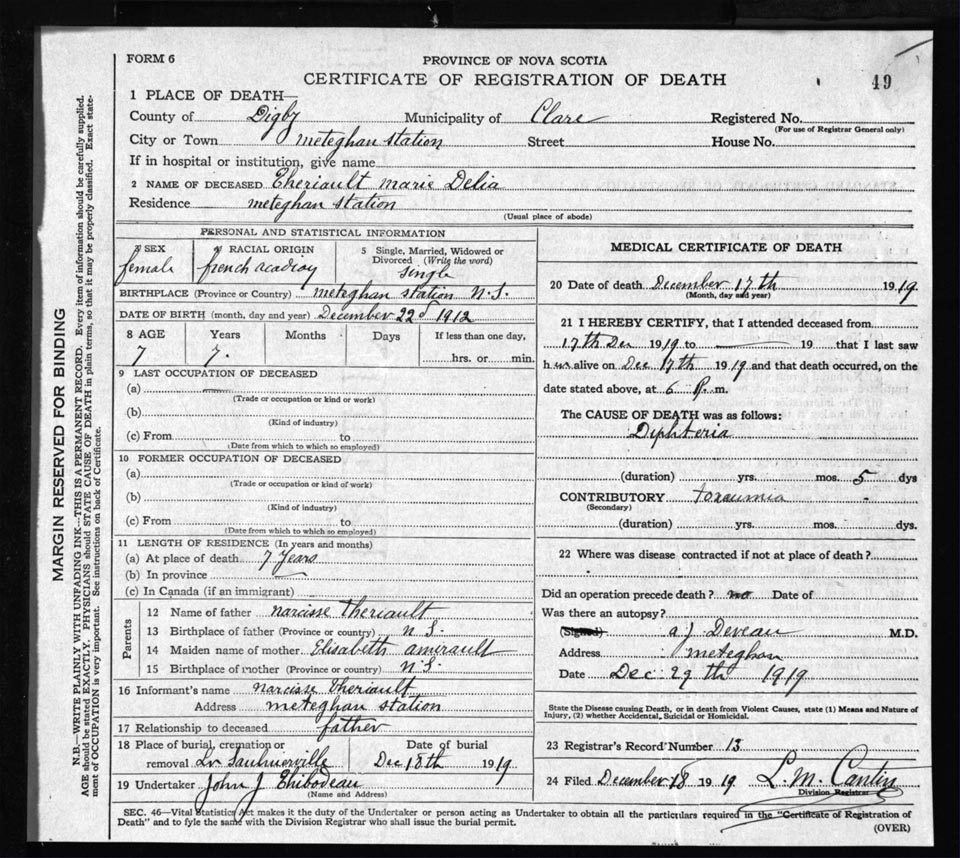 FORM 6
PROVINCE OF NOVA SCOTIA
CERTIFICATE OF REGISTRATION OF DEATH
49
1 PLACE OF DEATH—
County of Digby Municipality of Clare Registered No.
(For use of Registrar General only)
City or Town meteghan station Street House No.
If in hospital or institution, give name
2 NAME OF DECEASED Theriault marie Delia
Residence meteghan station
(Usual place of abode)
PERSONAL AND STATISTICAL INFORMATION
3 SEX female
4 RACIAL ORIGIN french
5 Single, Married, Widowed or Divorced (Write the word) single
BIRTHPLACE (Province or Country) meteghan station N.S.
DATE OF BIRTH (month, day and year) December 22d 1912
8 AGE Years Months Days If less than one day,
7 7. hrs. or min.
9 LAST OCCUPATION OF DECEASED
(a)
(Trade or occupation or kind or work)
(b)
(Kind of industry)
(c) From to
(Date from which to which so employed)
10 FORMER OCCUPATION OF DECEASED
(a)
(Trade or occupation or kind of work)
(b)
(Kind of industry)
(c) From to
(Date from which to which so employed)
11 LENGTH OF RESIDENCE (In years and months)
(a) At place of death 7 years
(b) In province
(c) In Canada (if an immigrant)
Parents
12 Name of father narcisse theriault
13 Birthplace of father (Province or country) N.S.
14 Maiden name of mother Elisabeth amirault
15 Birthplace of mother (Province or country) N.S.
16 Informant's name narcisse theriault
Address meteghan station
17 Relationship to deceased father
18 Place of burial, cremation or Date of burial
removal Saulnierville Dec 18th 1919
19 Undertaker John J Thibodeau
(Name and Address)
MEDICAL CERTIFICATE OF DEATH
20 Date of death December 17th 1919
(Month, day and year)
21 I HEREBY CERTIFY, that I attended deceased from
17th Dec 1919 to — 19 that I last saw
h alive on Dec 17th 1919 and that death occurred, on the
date stated above, at 6 P. m.
The CAUSE OF DEATH was as follows:
Diphteria
(duration) yrs. mos. 5 dys
CONTRIBUTORY toxaumia
(Secondary)
(duration) yrs. mos. dys.
22 Where was disease contracted if not at place of death?
Did an operation precede death? no Date of
Was there an autopsy?
(Signed) a J Deveau M.D.
Address meteghan
Date Dec 29th 1919
State the Disease causing Death, or in death from Violent Causes, state (1) Means and Nature of
Injury, (2) whether Accidental, Suicidal or Homicidal.
23 Registrar's Record Number 13
24 Filed December 18 1919 L. M. Cantin
Division Registrar
SEC. 46—Vital Statistics Act makes it the duty of the Undertaker or person acting as Undertaker to obtain all the particulars required in the "Certificate of Registration of
Death" and to fyle the same with the Division Registrar who shall issue the burial permit.
(OVER)
MARGIN RESERVED FOR BINDING
N.B.—WRITE PLAINLY WITH UNFADING INK—THIS IS A PERMANENT RECORD. Every item of information should be carefully supplied.
AGE should be stated EXACTLY. PHYSICIANS should STATE CAUSE OF DEATH in plain terms, so that it may be properly classified. Exact state-
ment of OCCUPATION is very important. See instructions on back of Certificate.